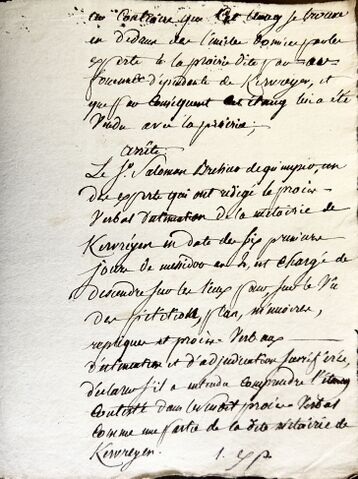 au contraire que cet étang se trouve
en dedans des limites données par les
experts à la prairie dite
dépendante de Kervreyen, et
que par conséquent cet étang lui a été
vendu avec la prairie,
arrête
Le Sr. Salomon Brehier de quimper, un
des experts qui ont rédigé le procès
verbal d'estimation de la métairie de
Kervréyen en date des six premiers
jours de messidor an 2, est chargé de
descendre sur les lieux pour sur le vu
des pétitions, plan, mémoires,
repliques et procès verbaux
d'estimation et d'adjudication
déclarer s'il a entendu comprendre l'étang
contesté dans procès verbal
comme une partie de la dite métairie de
Kervreyen.